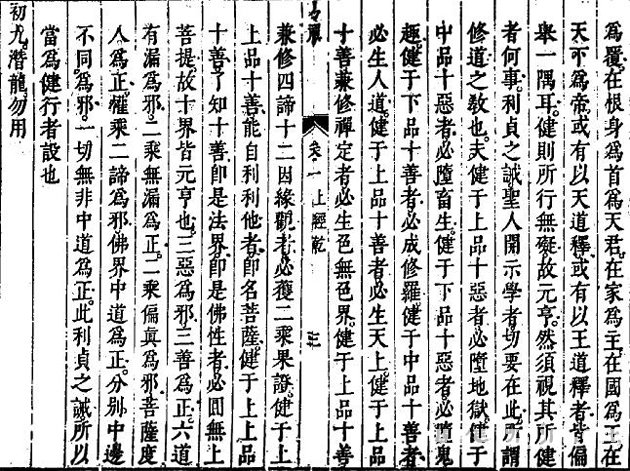 為覆。在根身為首為天君。在家為主。在國為王在
天下為帝或有以天道釋或有以王道釋者皆偏
舉一隅耳。健則所行無礙故元亨。然須視其所健
者何事。利貞之誡聖人開示學者切要在此。所謂
修道之教也。夫健于上品十惡者必墮地獄健于
中品十惡者必墮畜生。健于下品十惡者必墮鬼
趣。健于下品十善者必成修羅健于中品十善者
必生人道。健于上品十善者必生天上。健于上品
十善兼修禪定者必生色無色界。健于上品十善
卷一 上經乾 三
兼修四諦十二因緣觀者必獲二乘果證。健于上
上品十善能自利利他者。即名菩薩。健于上上品
十善了知十善即是法界即是佛性者必圓無上
菩提故十界皆元亨也三惡為邪三善為正。六道
有漏為邪。二乘無漏為正。二乘偏真為邪。菩薩度
人為正。權乘二諦為邪佛界中道為正。分別中邊
不同為邪。一切無非中道為正。此利貞之誡所以
當為健行者設也
初九。潛龍。勿用